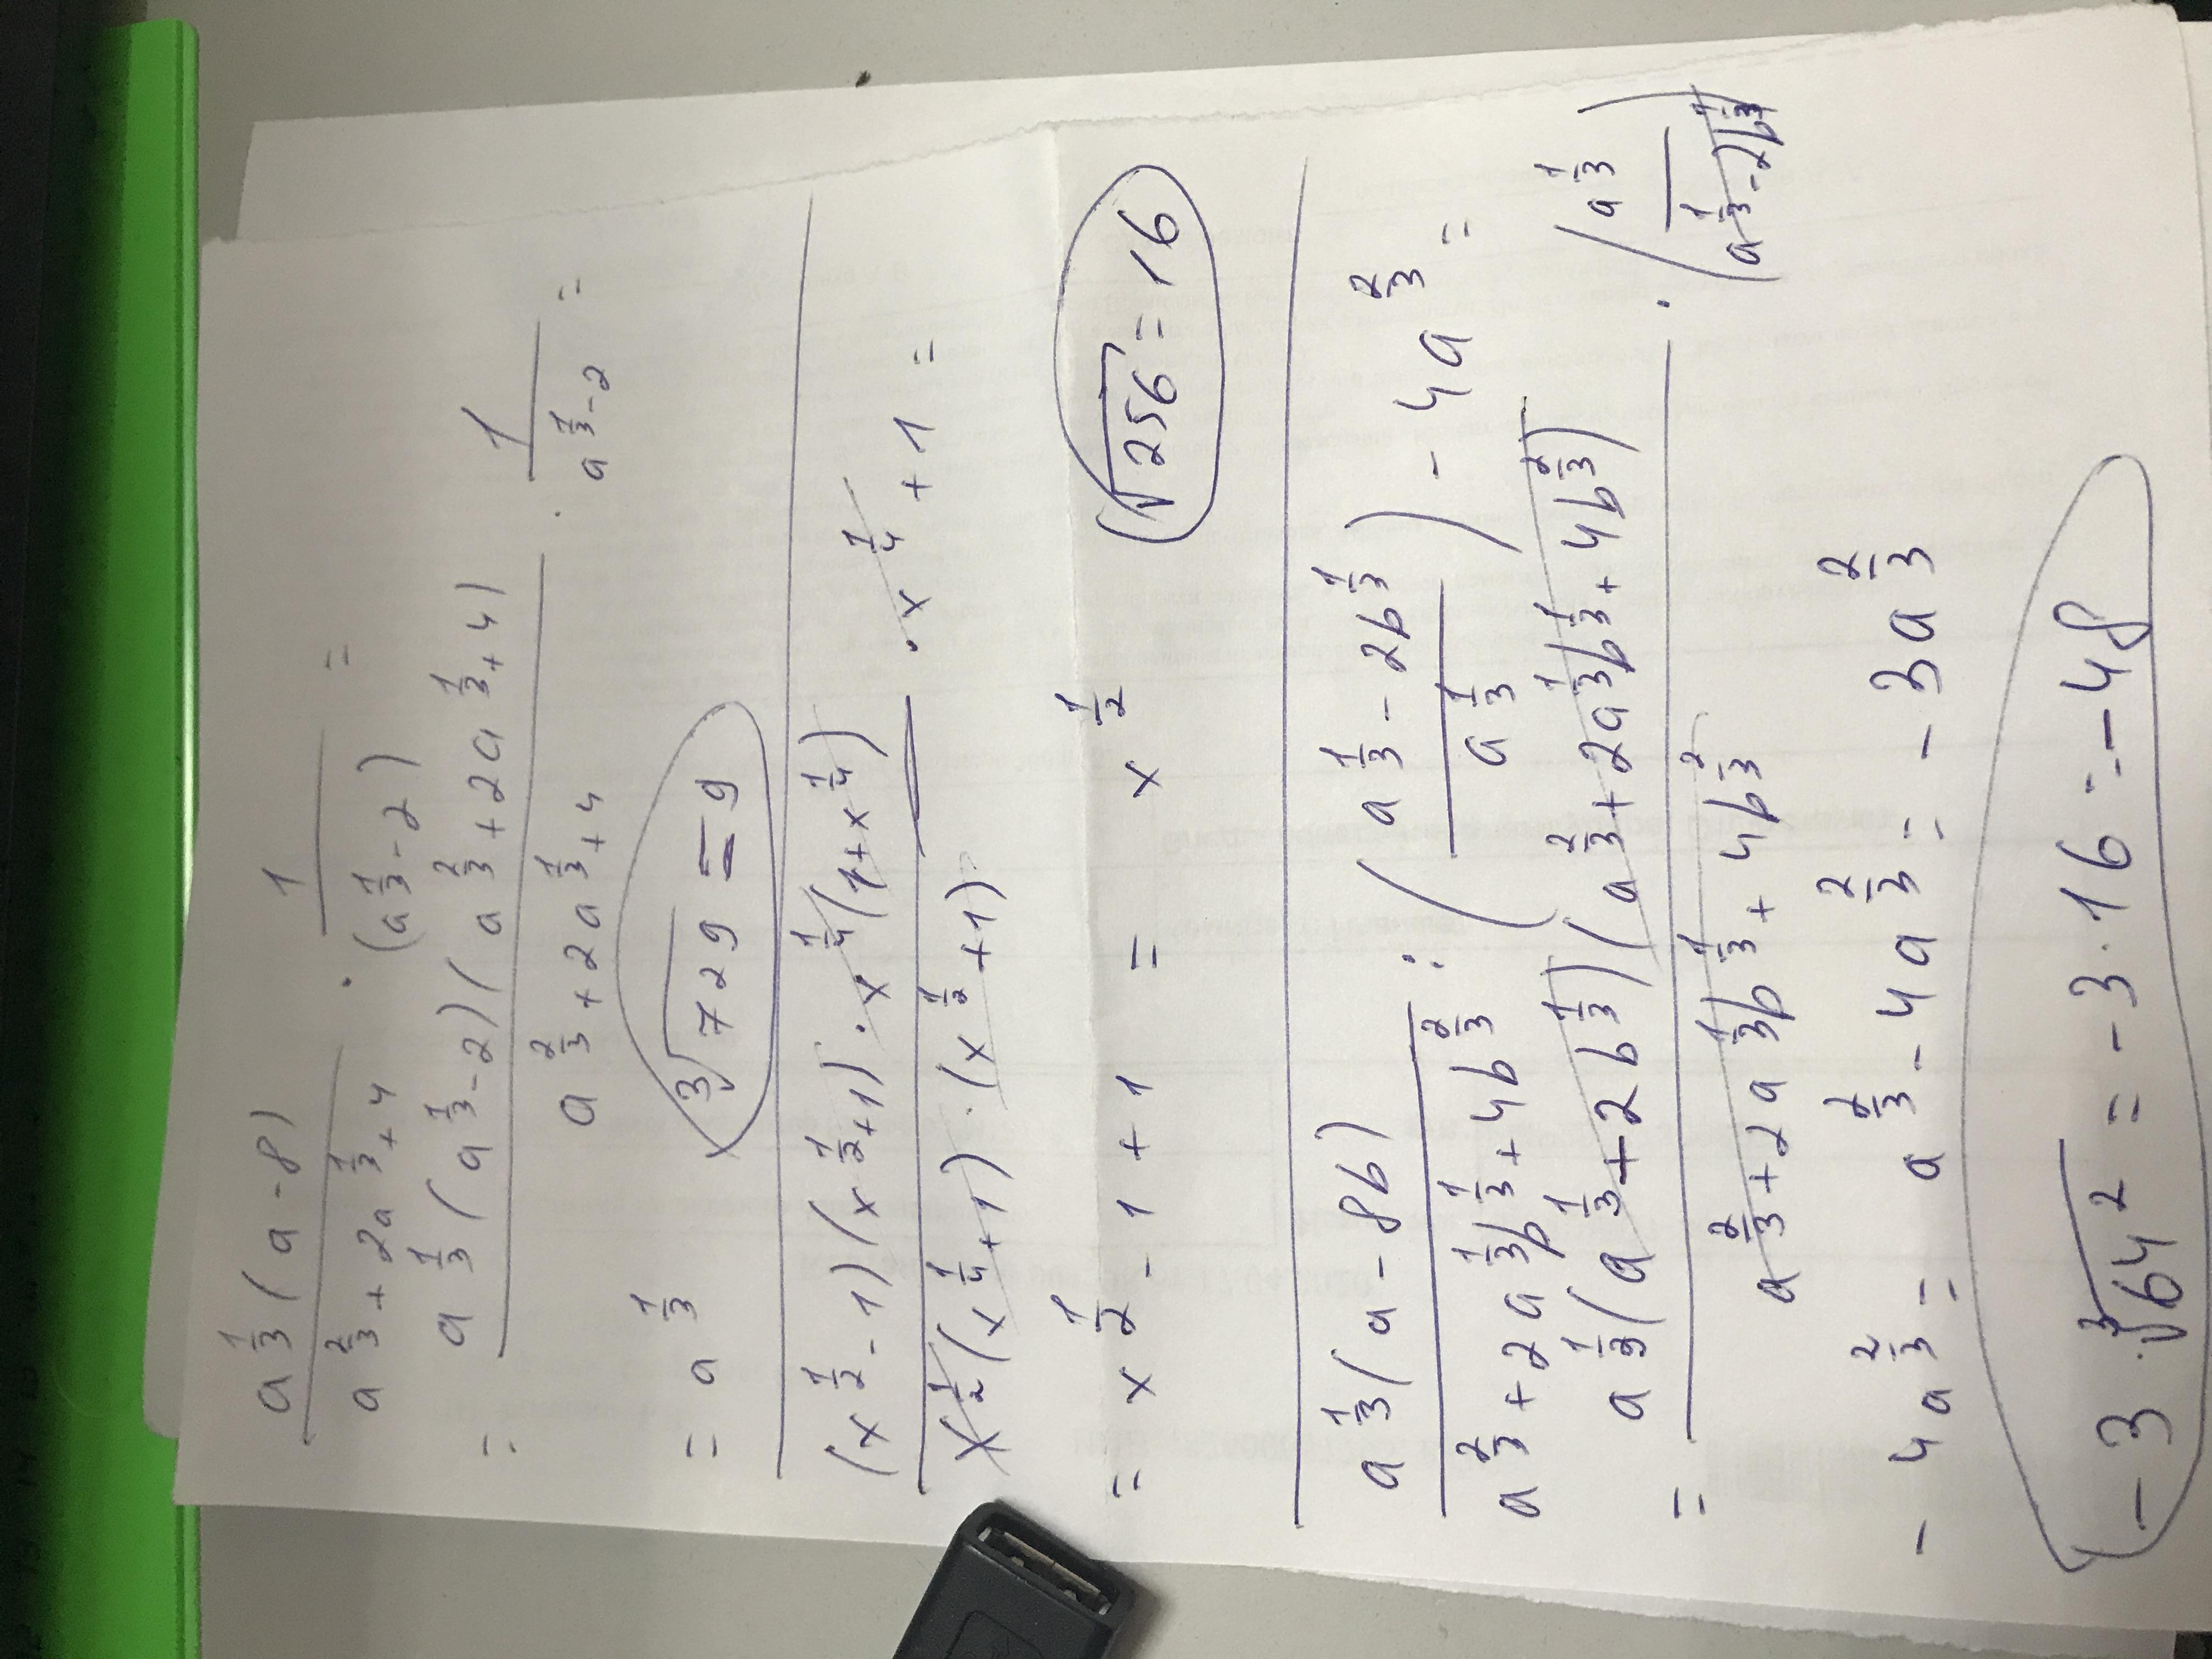 a^{1/3}(a-8) / (a^{2/3}+2a^{1/3}+4) · 1/(a^{1/3}-2) =
= a^{1/3}(a^{1/3}-2)(a^{2/3}+2a^{1/3}+4) / (a^{2/3}+2a^{1/3}+4) · 1/(a^{1/3}-2) =
= a^{1/3} ∛729 = 9
(x^{1/2}-1)(x^{1/2}+1)·x^{1/4}(1+x^{1/4}) / x^{1/2}(x^{1/4}+1)·(x^{1/2}+1) · x^{1/4} + 1 =
= x^{1/2} - 1 + 1 = x^{1/2} √256 = 16
a^{1/3}(a-8b) / (a^{2/3}+2a^{1/3}b^{1/3}+4b^{2/3}) : ((a^{1/3}-2b^{1/3}) / a^{1/3}) - 4a^{2/3} =
= a^{1/3}(a^{1/3}+2b^{1/3})(a^{2/3}+2a^{1/3}b^{1/3}+4b^{2/3}) / (a^{2/3}+2a^{1/3}b^{1/3}+4b^{2/3}) · (a^{1/3} / (a^{1/3}-2b^{1/3}))
- 4a^{2/3} = a^{2/3} - 4a^{2/3} = -3a^{2/3}
-3·∛64² = -3·16 = -48